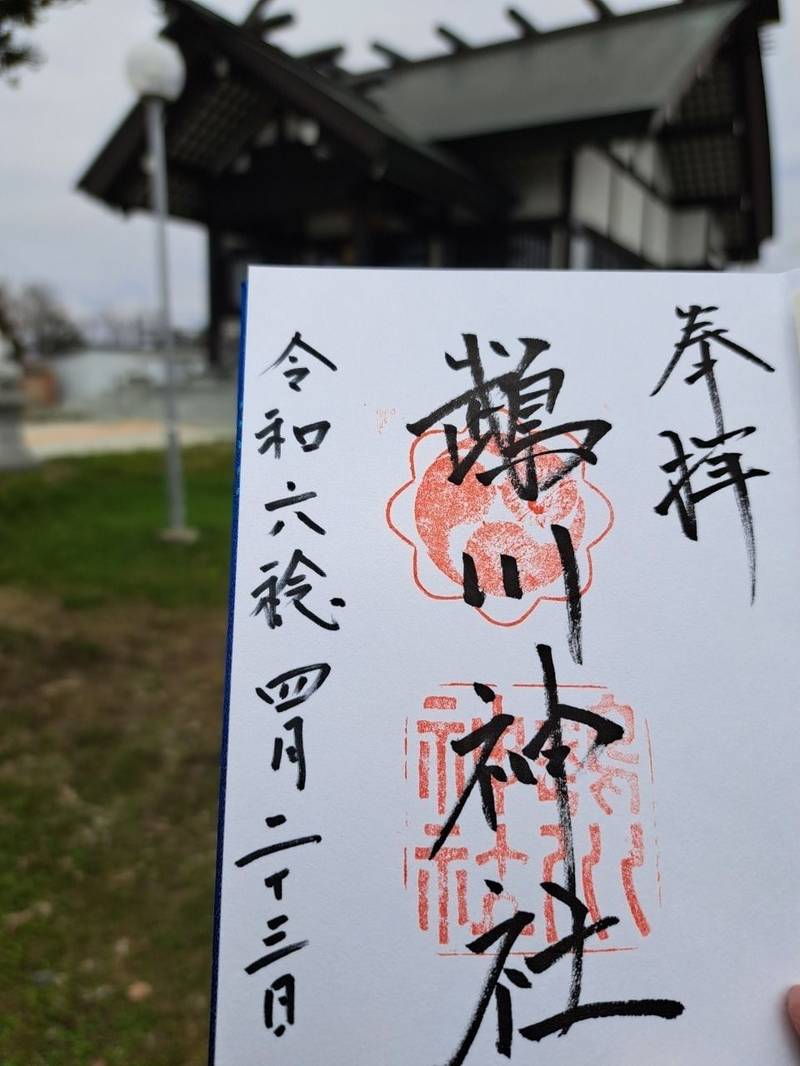 奉拝
鵡川神社
鵡川
神社
令和六稔四月二十三日